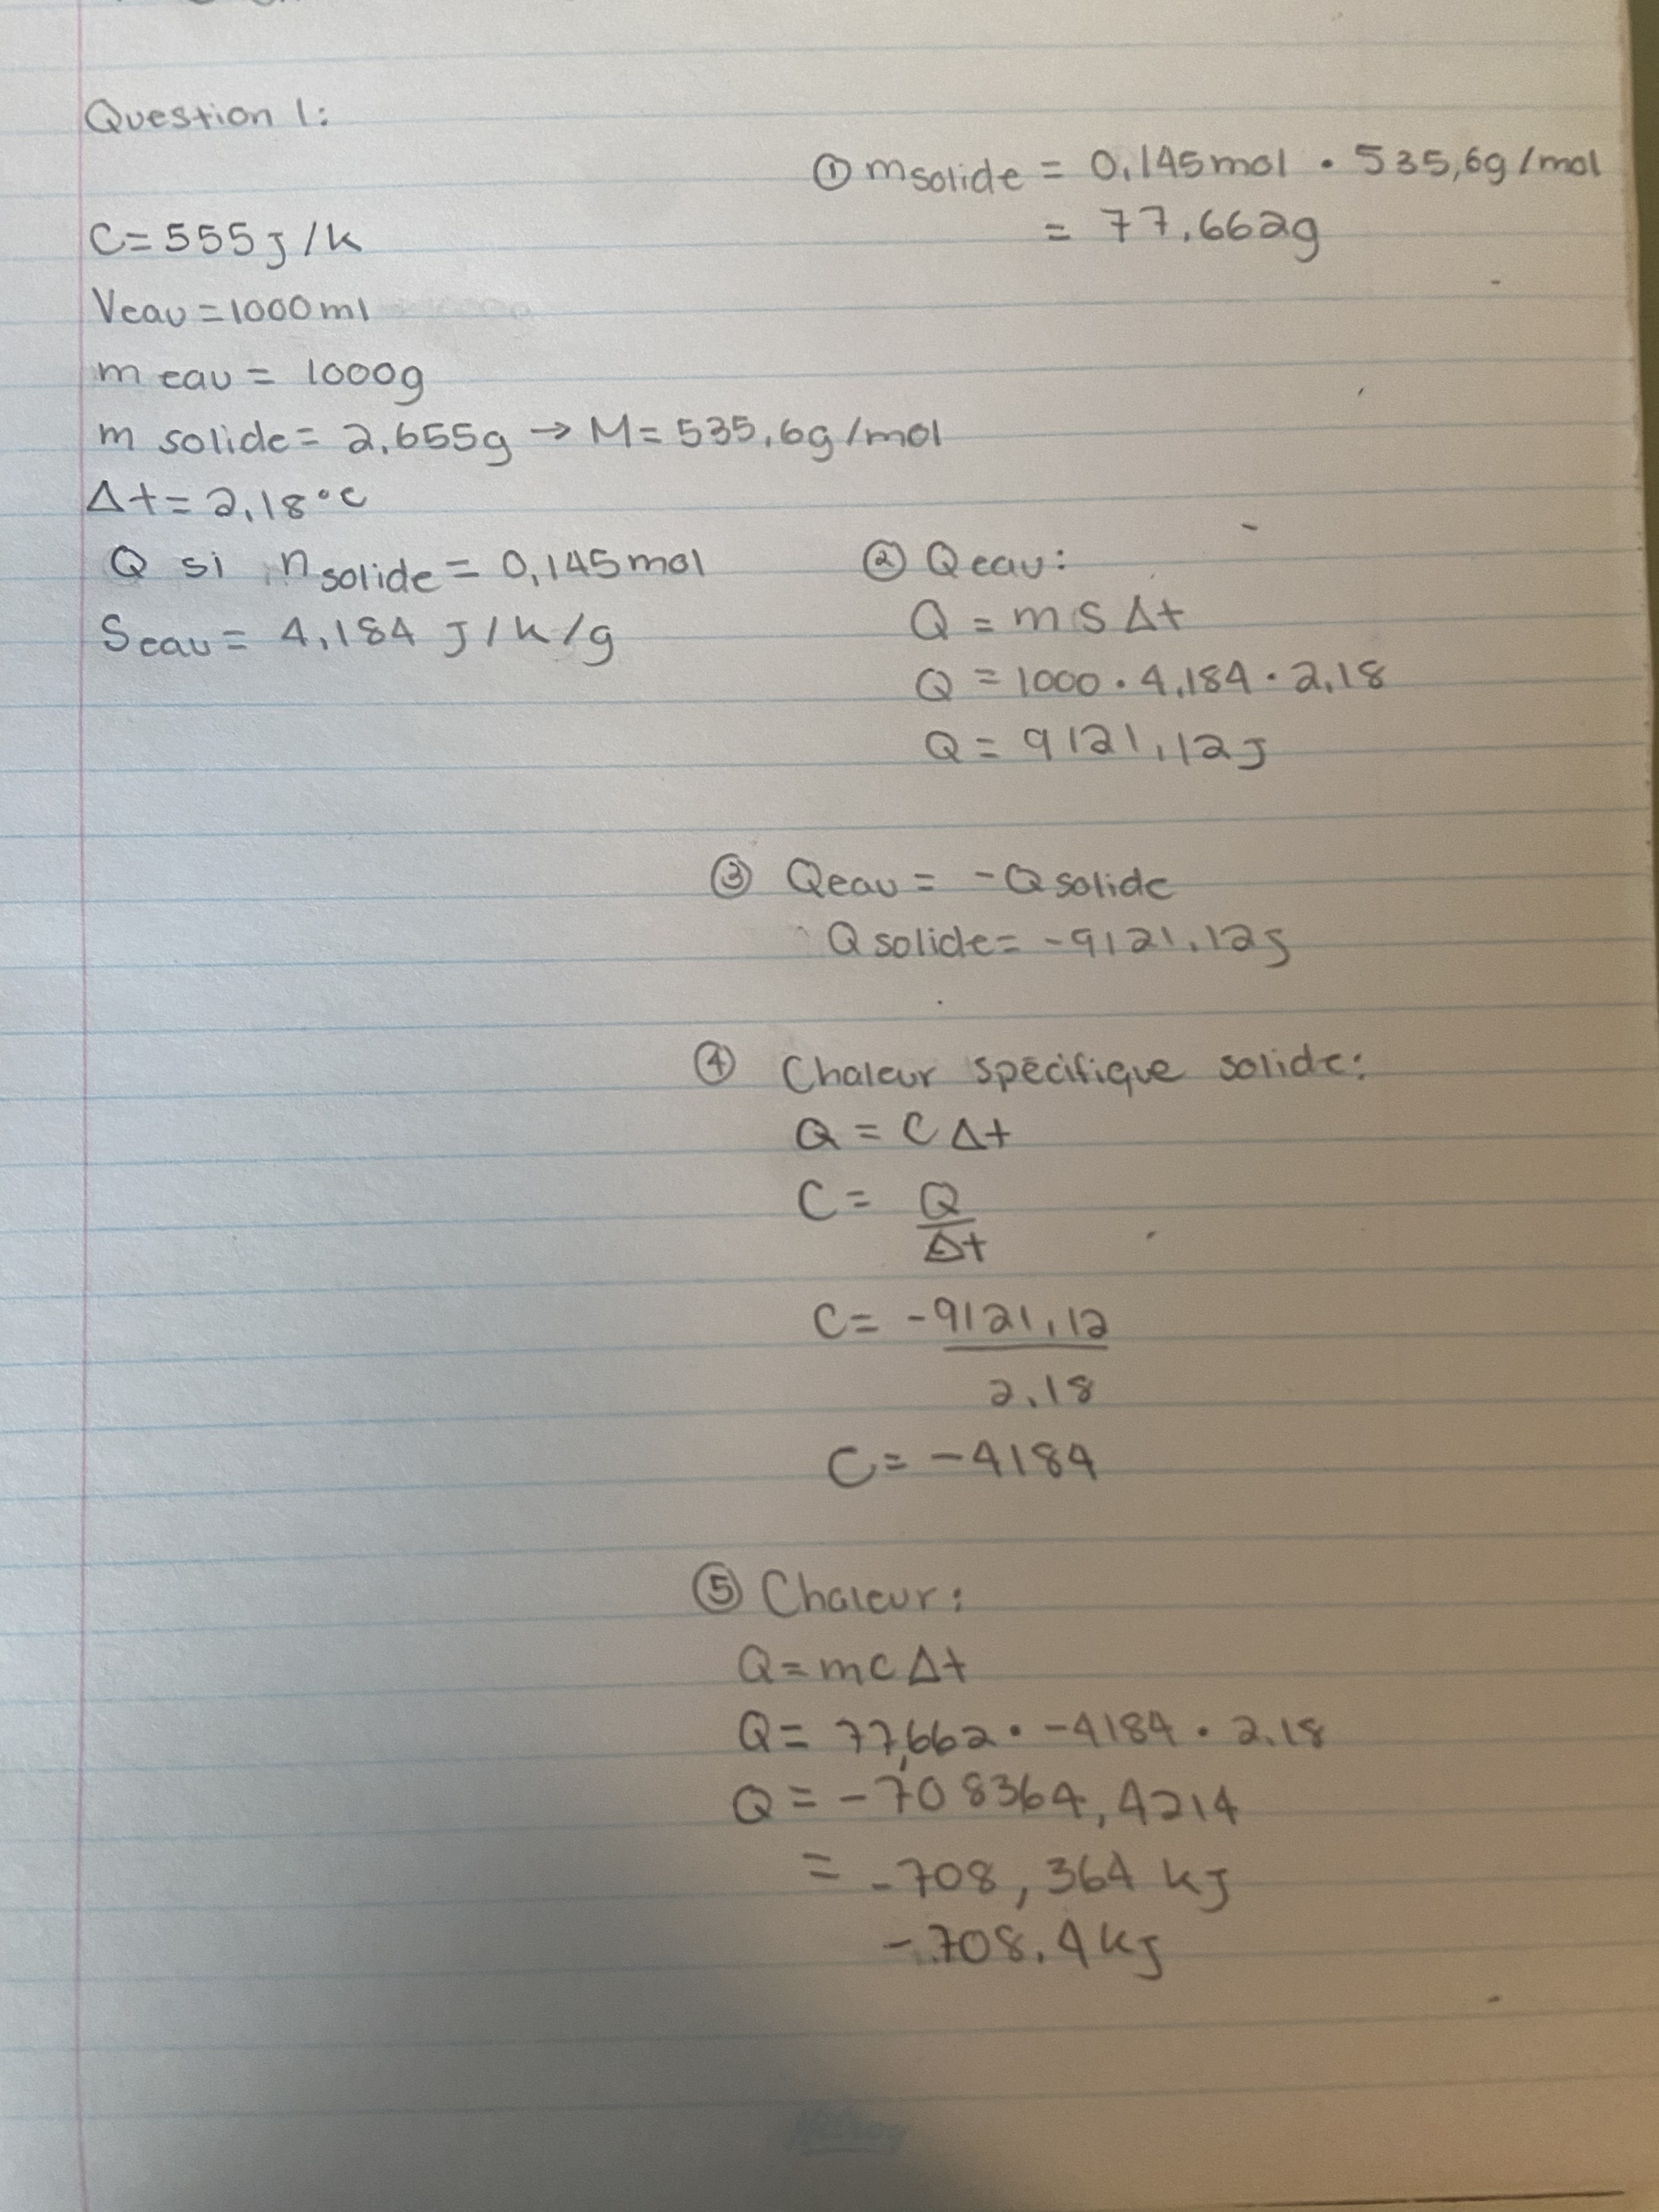 Question 1:
① msolide = 0,145mol · 535,6g/mol
= 77,662g
C=555J/K
Veau=1000ml
m eau = 1000g
m solide = 2,655g → M=535,6g/mol
Δt=2,18°C
Q si nsolide = 0,145mol
Seau = 4,184 J/K/g
② Qeau:
Q = m s Δt
Q = 1000 · 4,184 · 2,18
Q = 9121,12J
③ Qeau = -Qsolide
Qsolide = -9121,12J
④ Chaleur spécifique solide:
Q = C Δt
C = Q
Δt
C = -9121,12
2,18
C = -4184
⑤ Chaleur:
Q = mcΔt
Q = 77,662 · -4184 · 2,18
Q = -708364,4214
= -708,364 kJ
-708,4 kJ